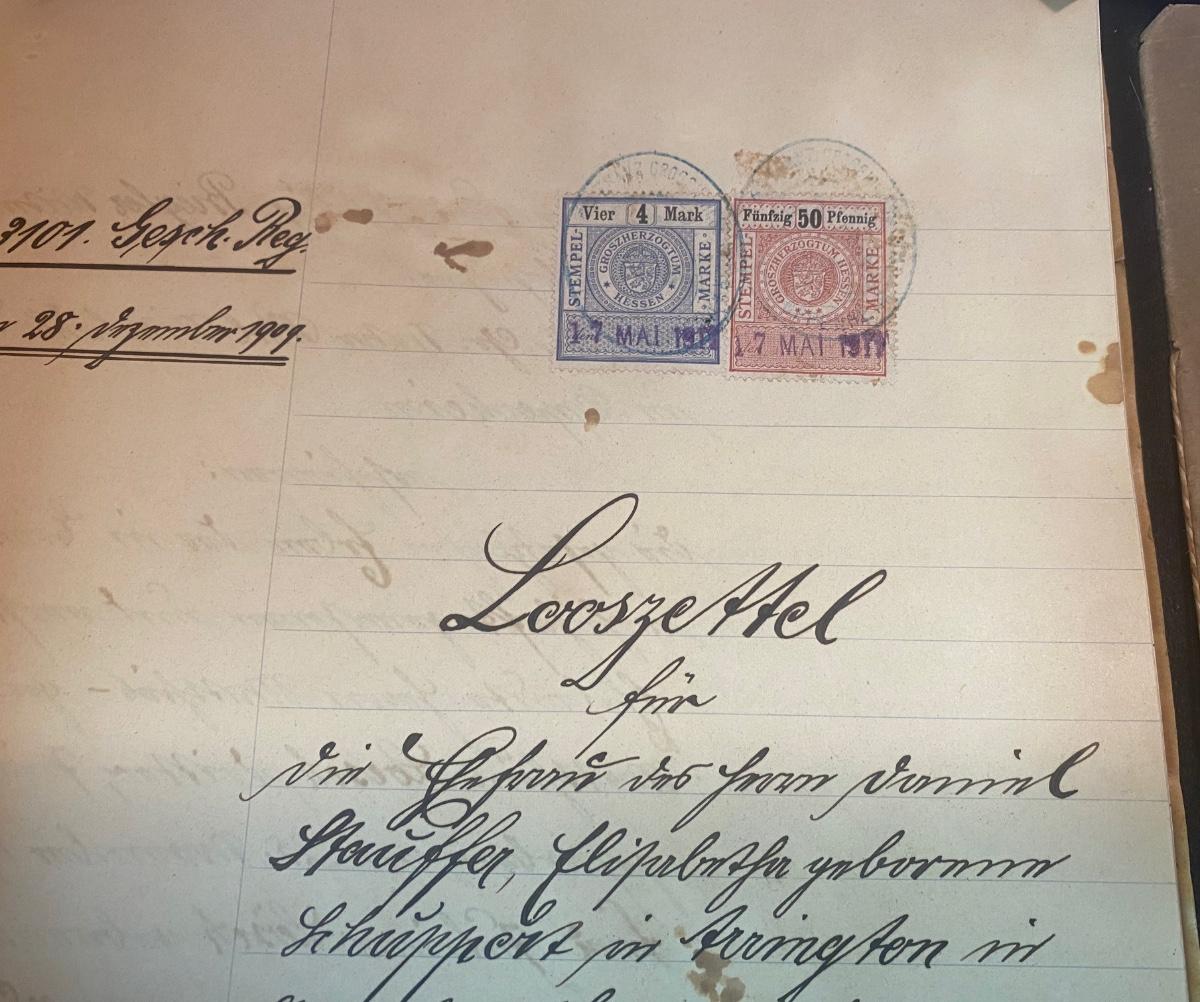 3101. Gesch. Reg.
28. Dezember 1909.
Vier 4 Mark
STEMPEL-MARKE
GROSZHERZOGTUM HESSEN
17 MAI 191
Fünfzig 50 Pfennig
STEMPEL-MARKE
GROSZHERZOGTUM HESSEN
17 MAI 191
Looszettel
für
die Ehefrau des Herrn Daniel
Stauffer, Elisabetha geborene
Schuppert in Arrington in